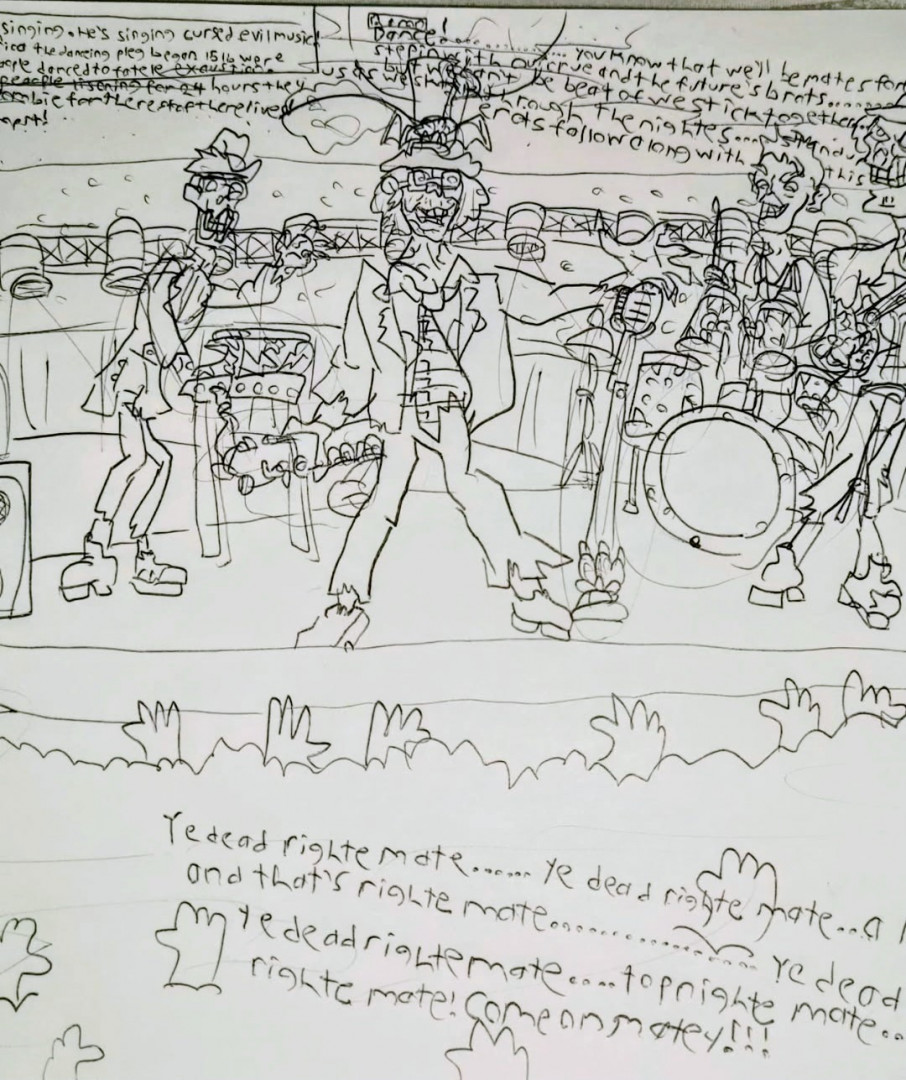 singing. He's singing cursed evil music!
the dancing pleg began 1518 were
people danced to exaustion.
people lisening for 24 hours they
zombie for the rest of there lived
Dance!
........... you know that we'll be mates for
step in with our crue and the future's brats........
us as we can't be beat of we stick together
through the nightes....
brats follow along with this
Ye dead righte mate...... ye dead righte mate...a
and that's righte mate................... ye dead
Ye dead righte mate.... top nighte mate...
righte mate! Come on matey!!!